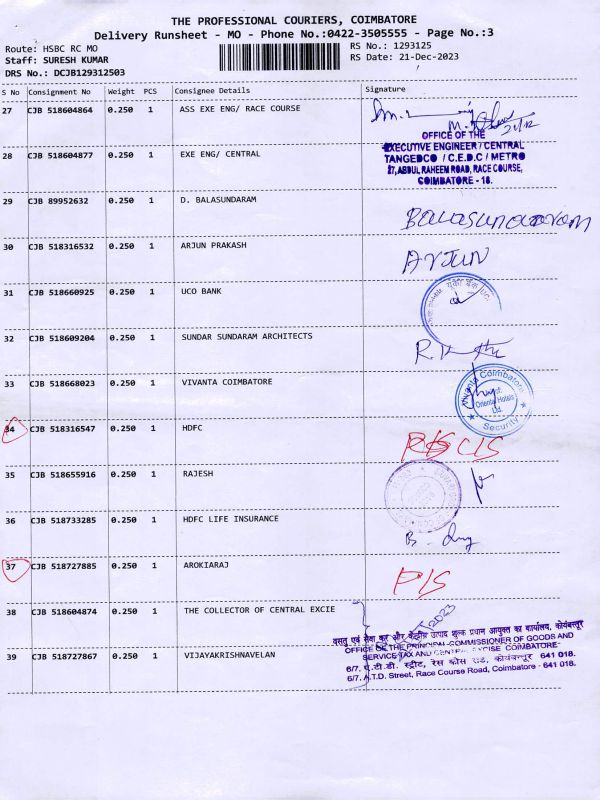 THE PROFESSIONAL COURIERS, COIMBATORE
Delivery Runsheet - MO - Phone No.:0422-3505555 - Page No.:3
Route: HSBC RC MO
RS No.: 1293125
Staff: SURESH KUMAR
RS Date: 21-Dec-2023
DRS No.: DCJB129312503
S No Consignment No Weight PCS Consignee Details Signature
27 CJB 518604864 0.250 1 ASS EXE ENG/ RACE COURSE
21/12
28 CJB 518604877 0.250 1 EXE ENG/ CENTRAL
OFFICE OF THE
EXECUTIVE ENGINEER / CENTRAL
TANGEDCO / C.E.D.C / METRO
27, ABDUL RAHEEM ROAD, RACE COURSE,
COIMBATORE - 18.
29 CJB 89952632 0.250 1 D. BALASUNDARAM
Balasundaram
30 CJB 518316532 0.250 1 ARJUN PRAKASH
ARJUN
31 CJB 518660925 0.250 1 UCO BANK
यूको बैंक
32 CJB 518609204 0.250 1 SUNDAR SUNDARAM ARCHITECTS
33 CJB 518668023 0.250 1 VIVANTA COIMBATORE
Vivanta Coimbatore
Oriental Hotels
Ltd.
Security
34 CJB 518316547 0.250 1 HDFC
35 CJB 518655916 0.250 1 RAJESH
36 CJB 518733285 0.250 1 HDFC LIFE INSURANCE
37 CJB 518727885 0.250 1 AROKIARAJ
P/S
38 CJB 518604874 0.250 1 THE COLLECTOR OF CENTRAL EXCIE
वस्तु एवं सेवा कर और केंद्रीय उत्पाद शुल्क प्रधान आयुक्त का कार्यालय, कोयंबत्तूर
OFFICE OF THE PRINCIPAL COMMISSIONER OF GOODS AND
SERVICE TAX AND CENTRAL EXCISE COIMBATORE-
39 CJB 518727867 0.250 1 VIJAYAKRISHNAVELAN
6/7. ए.टी.डी. स्ट्रीट, रेस कोर्स रोड, कोयंबत्तूर 641 018.
6/7. A.T.D. Street, Race Course Road, Coimbatore - 641 018.